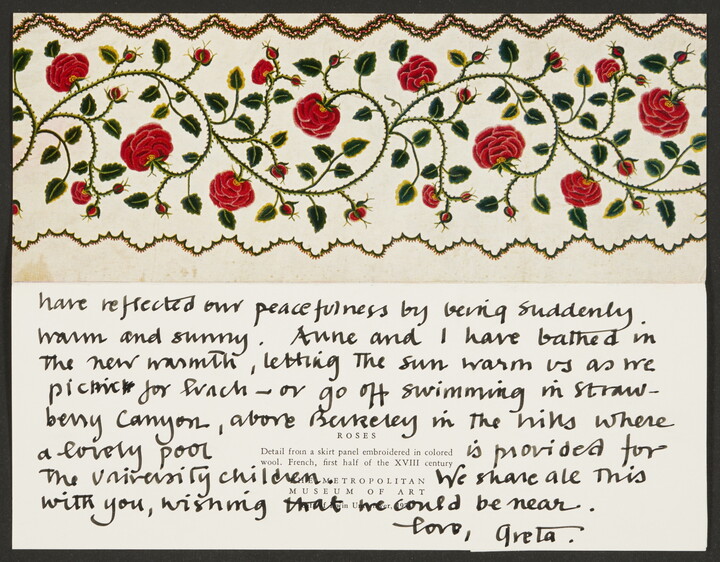 have reflected our peacefulness by being suddenly
warm and sunny. Anne and I have bathed in
the new warmth, letting the sun warm us as we
picnic for lunch – or go off swimming in Straw-
berry Canyon, above Berkeley in the hills where
ROSES
a lovely pool is provided for
Detail from a skirt panel embroidered in colored
wool. French, first half of the XVIII century
the University children. We share all this
THE METROPOLITAN
MUSEUM OF ART
with you, wishing that we could be near.
love, Greta.